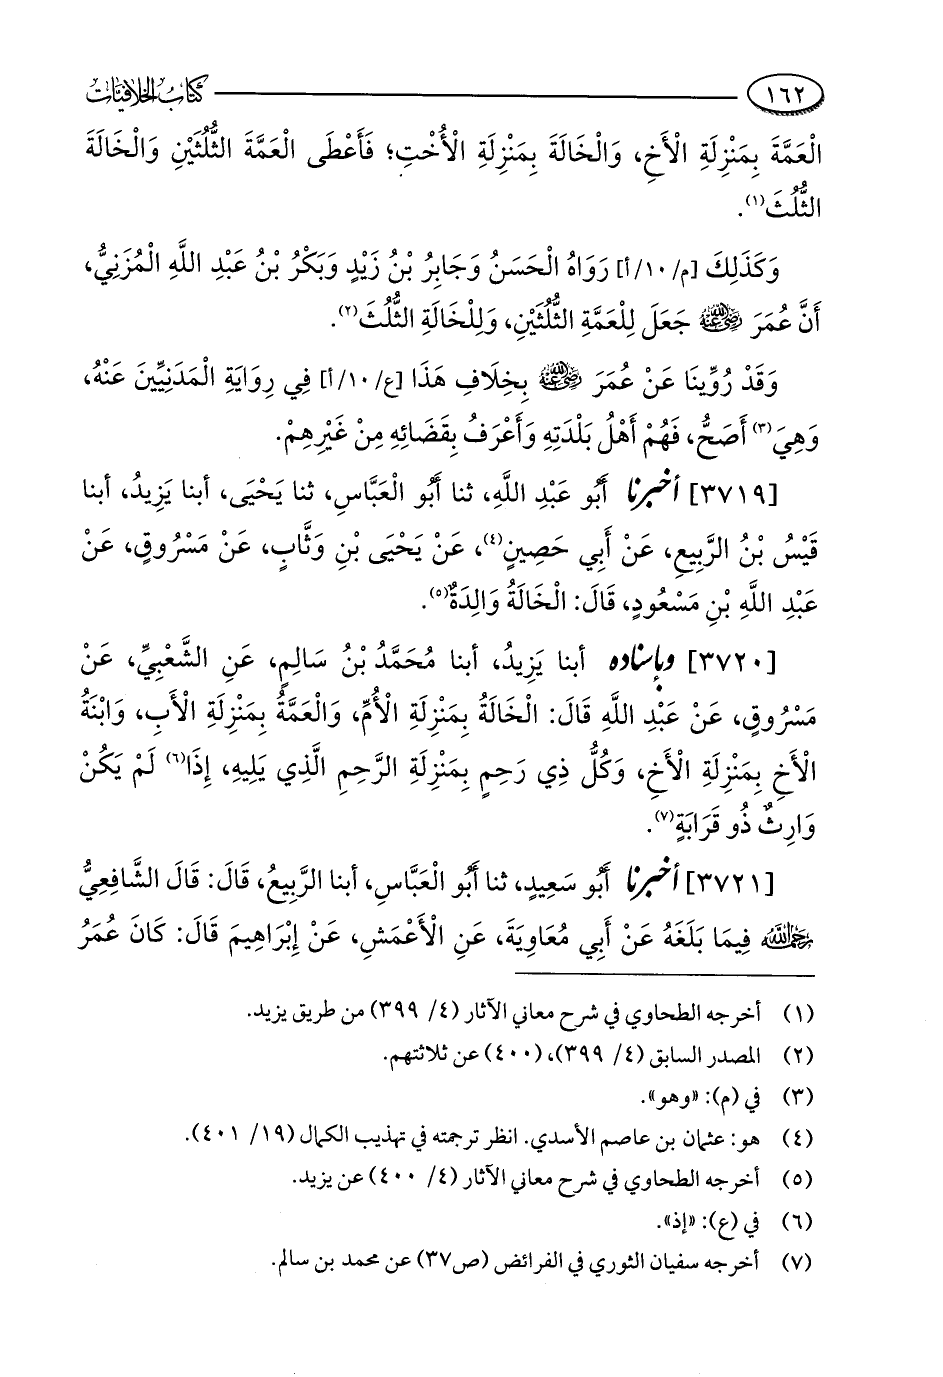 ١٦٢ كتاب الخلافيات
الْعَمَّةَ بِمَنْزِلَةِ الْأَخِ، وَالْخَالَةَ بِمَنْزِلَةِ الْأُخْتِ؛ فَأَعْطَى الْعَمَّةَ الثُّلُثَيْنِ وَالْخَالَةَ
الثُّلُثَ(١).
وَكَذَلِكَ [م/١٠/أ] رَوَاهُ الْحَسَنُ وَجَابِرُ بْنُ زَيْدٍ وَبَكْرُ بْنُ عَبْدِ اللَّهِ الْمُزَنِيُّ،
أَنَّ عُمَرَ رضي الله عنه جَعَلَ لِلْعَمَّةِ الثُّلُثَيْنِ، وَلِلْخَالَةِ الثُّلُثَ(٢).
وَقَدْ رُوِّينَا عَنْ عُمَرَ رضي الله عنه بِخِلَافِ هَذَا [ع/١٠/أ] فِي رِوَايَةِ الْمَدَنِيِّينَ عَنْهُ،
وَهِيَ(٣) أَصَحُّ، فَهُمْ أَهْلُ بَلْدَتِهِ وَأَعْرَفُ بِقَضَائِهِ مِنْ غَيْرِهِمْ.
[٣٧١٩] أخبرنا أَبُو عَبْدِ اللَّهِ، ثنا أَبُو الْعَبَّاسِ، ثنا يَحْيَى، أبنا يَزِيدُ، أبنا
قَيْسُ بْنُ الرَّبِيعِ، عَنْ أَبِي حَصِينٍ(٤)، عَنْ يَحْيَى بْنِ وَثَّابٍ، عَنْ مَسْرُوقٍ، عَنْ
عَبْدِ اللَّهِ بْنِ مَسْعُودٍ، قَالَ: الْخَالَةُ وَالِدَةٌ(٥).
[٣٧٢٠] وبإسناده أبنا يَزِيدُ، أبنا مُحَمَّدُ بْنُ سَالِمٍ، عَنِ الشَّعْبِيِّ، عَنْ
مَسْرُوقٍ، عَنْ عَبْدِ اللَّهِ قَالَ: الْخَالَةُ بِمَنْزِلَةِ الْأُمِّ، وَالْعَمَّةُ بِمَنْزِلَةِ الْأَبِ، وَابْنَةُ
الْأَخِ بِمَنْزِلَةِ الْأَخِ، وَكُلُّ ذِي رَحِمٍ بِمَنْزِلَةِ الرَّحِمِ الَّذِي يَلِيهِ، إِذَا(٦) لَمْ يَكُنْ
وَارِثٌ ذُو قَرَابَةٍ(٧).
[٣٧٢١] أخبرنا أَبُو سَعِيدٍ، ثنا أَبُو الْعَبَّاسِ، أبنا الرَّبِيعُ، قَالَ: قَالَ الشَّافِعِيُّ
رحمه الله فِيمَا بَلَغَهُ عَنْ أَبِي مُعَاوِيَةَ، عَنِ الْأَعْمَشِ، عَنْ إِبْرَاهِيمَ قَالَ: كَانَ عُمَرُ
(١) أخرجه الطحاوي في شرح معاني الآثار (٤/ ٣٩٩) من طريق يزيد.
(٢) المصدر السابق (٤/ ٣٩٩)، (٤٠٠) عن ثلاثتهم.
(٣) في (م): «وهو».
(٤) هو: عثمان بن عاصم الأسدي. انظر ترجمته في تهذيب الكمال (١٩/ ٤٠١).
(٥) أخرجه الطحاوي في شرح معاني الآثار (٤/ ٤٠٠) عن يزيد.
(٦) في (ع): «إذ».
(٧) أخرجه سفيان الثوري في الفرائض (ص٣٧) عن محمد بن سالم.